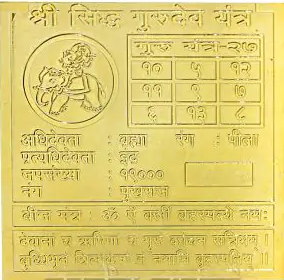 श्री सिद्ध गुरुदेव यंत्र
गुरु यंत्र-२७
१० ५ १२
११ ९ ७
६ १३ ८
अधिदेवता : ब्रह्मा रंग : पीला
प्रत्यधिदेवता : इंद्र
जपसंख्या : १९०००
नंग : पुखराज
बीज मंत्र : ॐ बृहस्पतये नमः
देवानां च ऋषिणां च गुरुं
बुद्धिभूतं त्रिलोकेशं तं नमामि बृहस्पतिम् ।